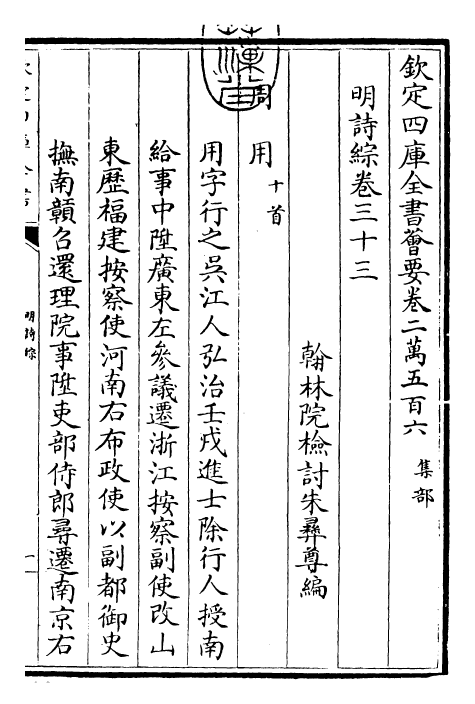 欽定四庫全書薈要卷二萬五百六 集部
明詩綜卷三十三
翰林院檢討朱彞尊編
周用十首
用字行之吳江人弘治壬戌進士除行人授南
給事中陞廣東左參議遷浙江按察副使改山
東歷福建按察使河南右布政使以副都御史
撫南贛召還理院事陞吏部侍郎尋遷南京右
明詩綜
一